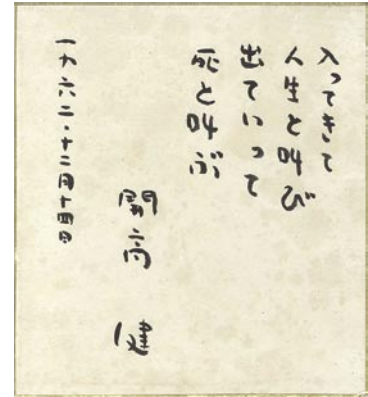 入ってきて
人生と叫び
出ていって
死と叫ぶ
開高 健
一九六二・十二月十四日